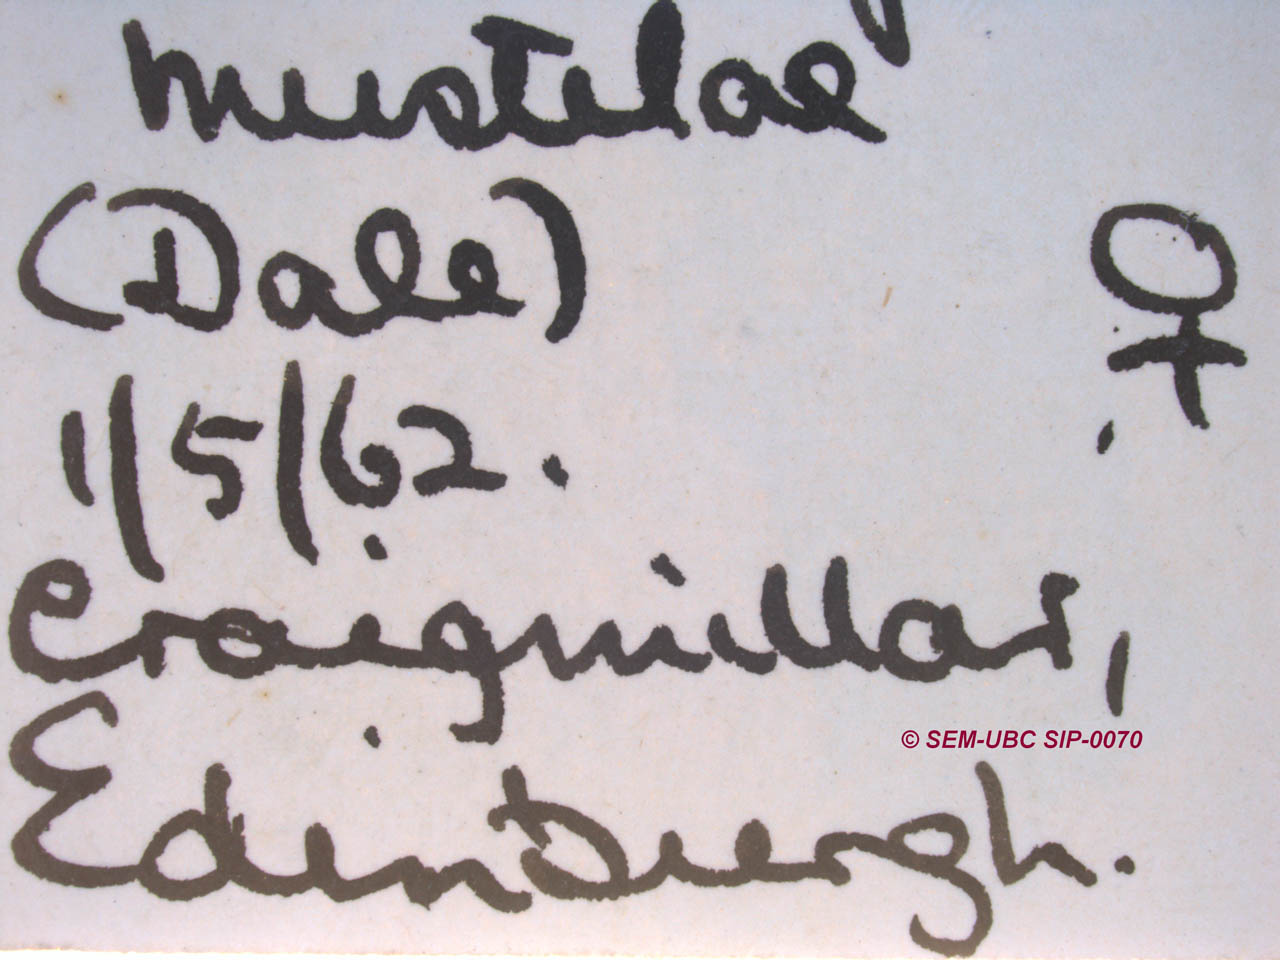 mustelae
(Dale) ♀
1/5/62.
Craigmillar,
© SEM-UBC SIP-0070
Edinburgh.